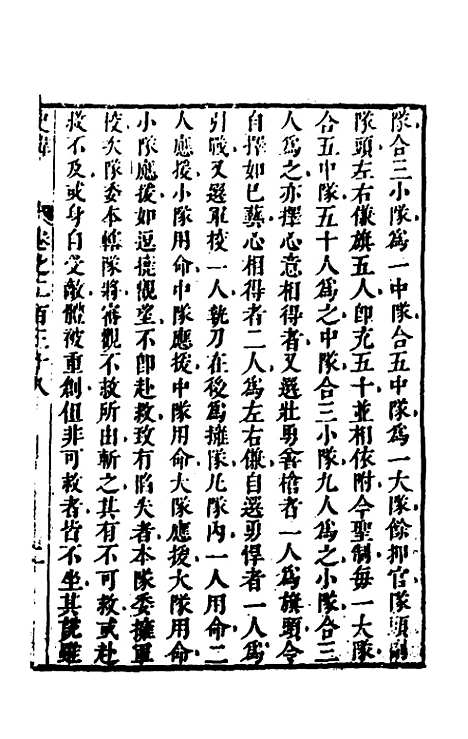 隊合三小隊爲一中隊合五中隊爲一大隊餘押官隊頭副
隊頭左右傔旗五人卽充五十並相依附今聖制每一大隊
合五中隊五十人爲之中隊合三小隊九人爲之小隊合三
人爲之亦擇心意相得者又選壯勇善槍者一人爲旗頭令
自擇如己藝心相得者二人爲左右傔自選勇悍者一人爲
引戰又選軍校一人執刀在後爲擁隊凡隊內一人用命二
人應援小隊用命中隊應援中隊用命大隊應援大隊用命
小隊應援如逗撓觀望不卽赴救致有陷失者本隊委擁軍
校次隊委本轄隊將審觀不救所由斬之其有不可救或赴
救不及或身自受敵體被重創但非可救者皆不坐其說雖
史緯 卷之二百三十八